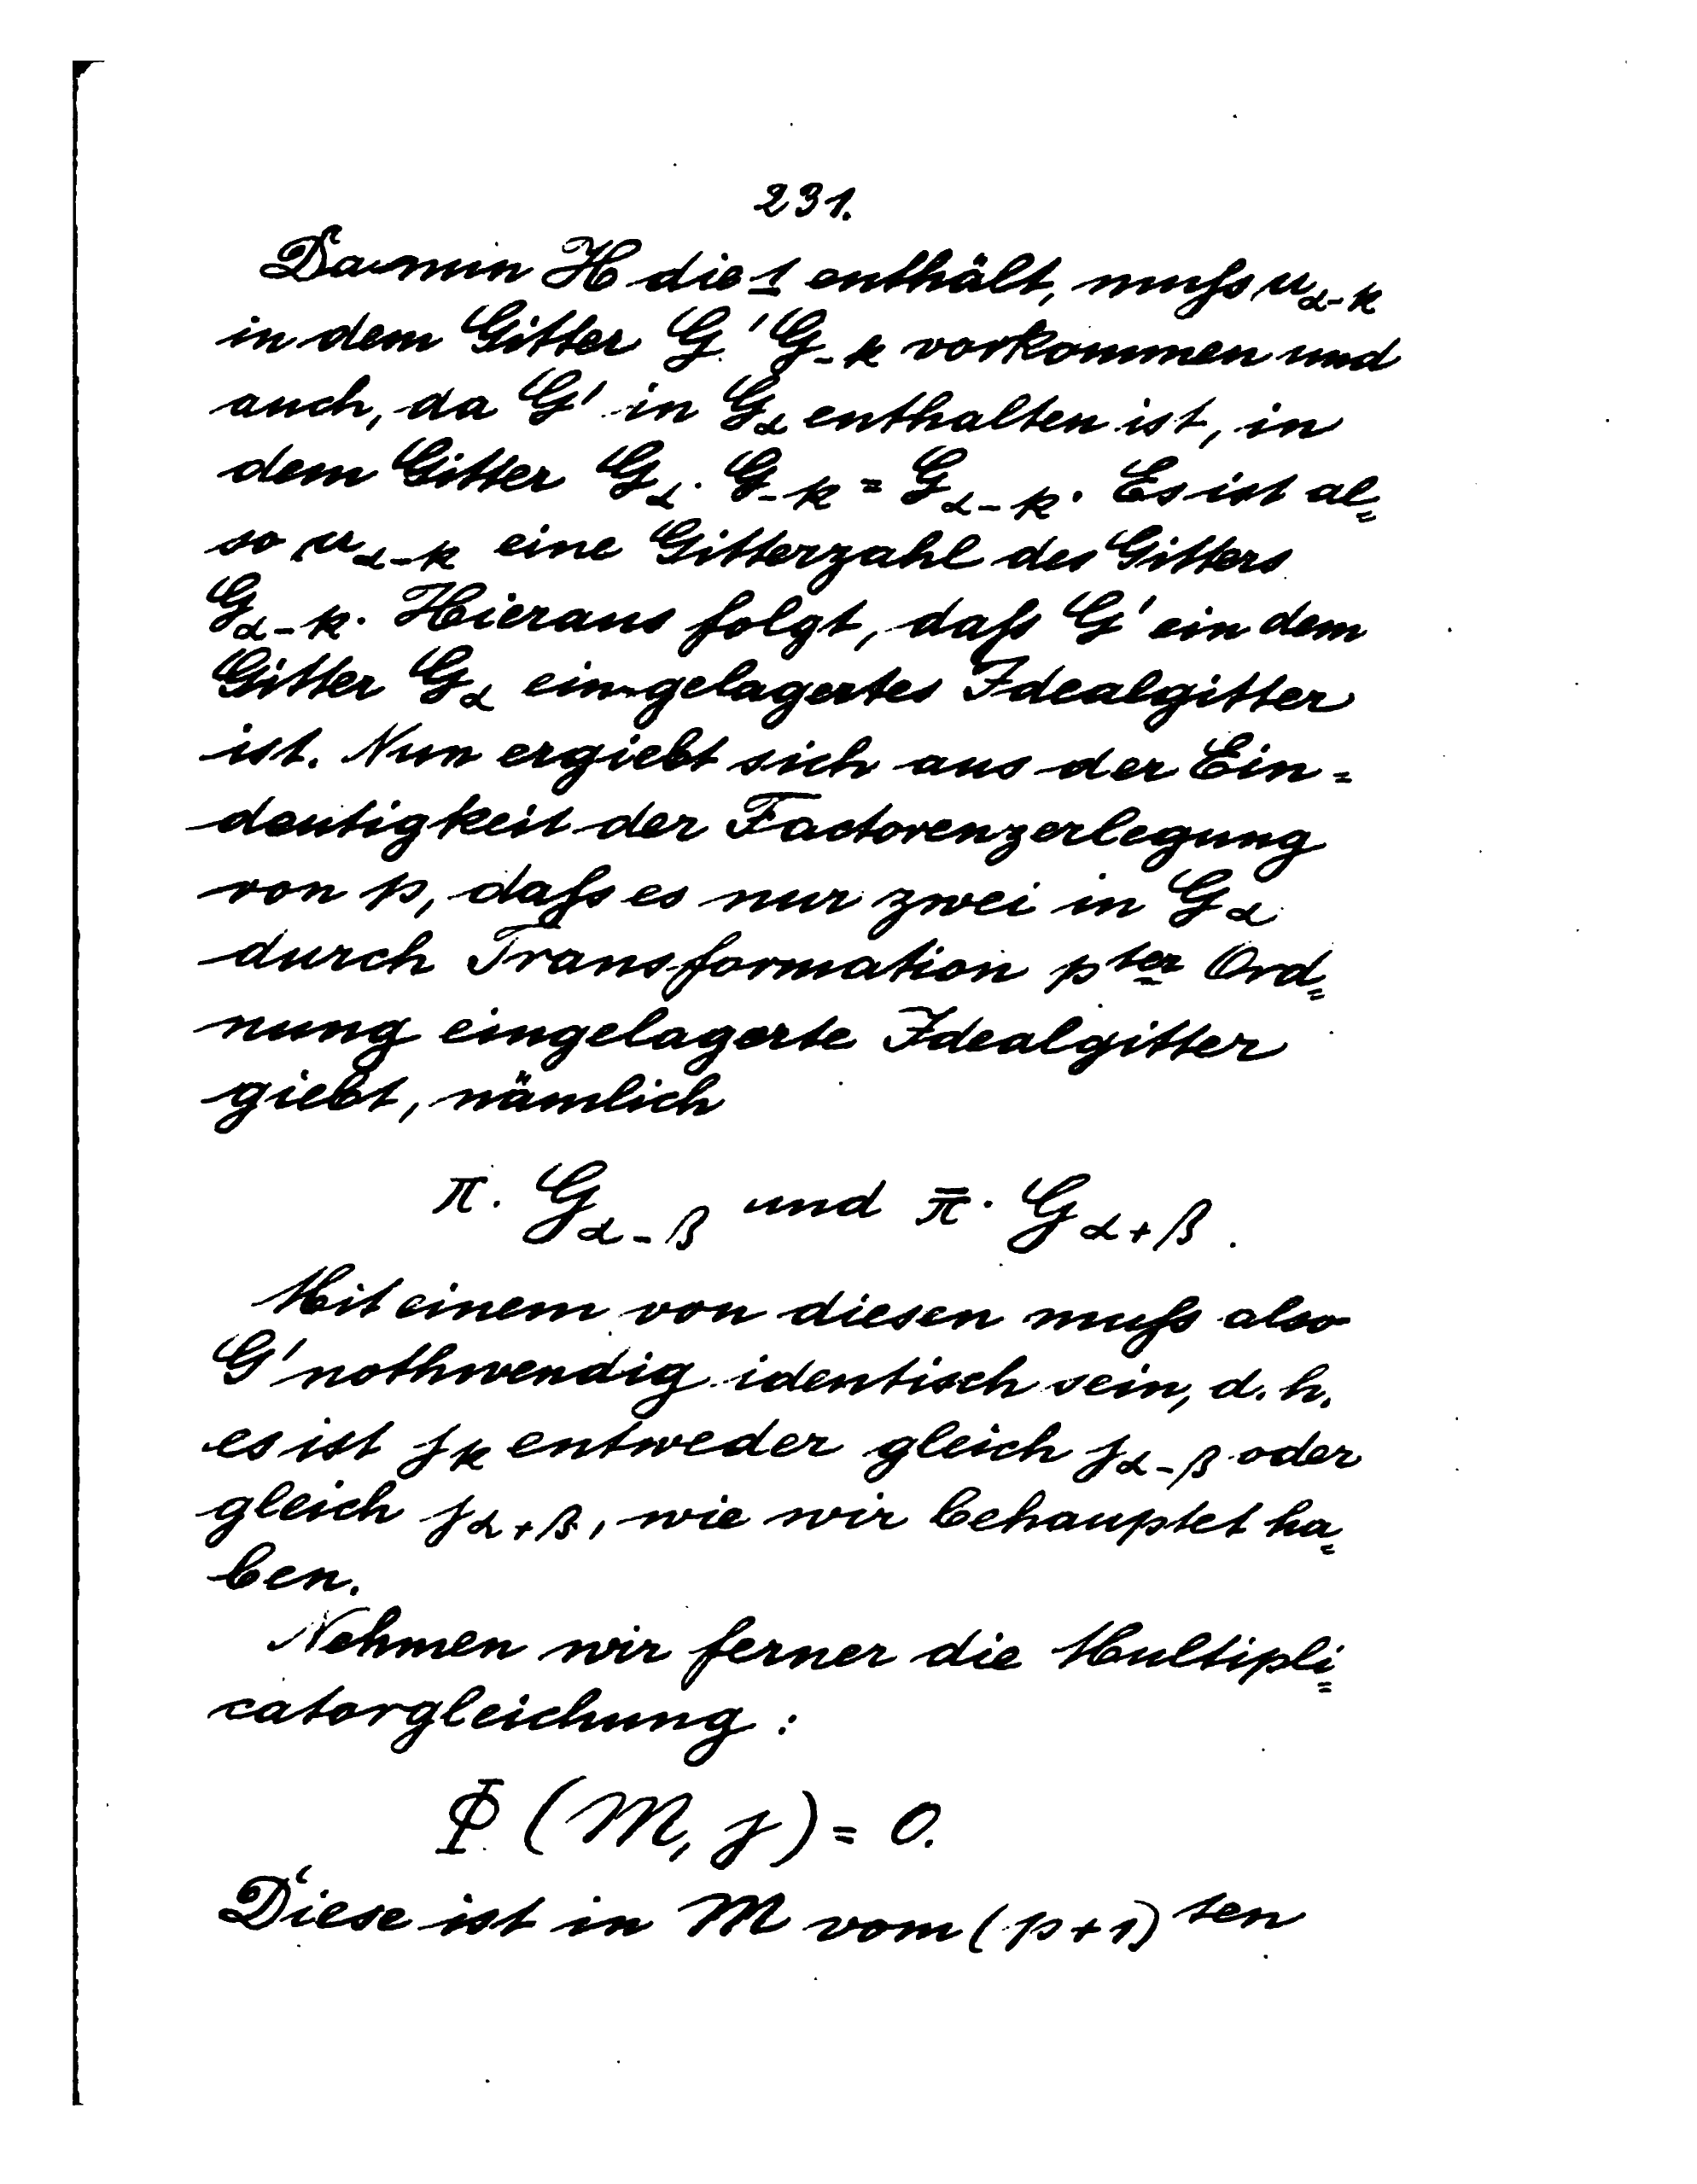 231.
Da nun H die 1 enthält, muſs u_{α-k}
in dem Gitter G' G_{-k} vorkommen und
auch, da G' in G_α enthalten ist, in
dem Gitter G_α · G_{-k} = G_{α-k}. Es ist al=
so u_{α-k} eine Gitterzahl des Gitters
G_{α-k}. Hieraus folgt, daſs G' ein dem
Gitter G_α ein-gelagertes Idealgitter
ist. Nun ergiebt sich aus der Ein=
deutigkeit der Factorenzerlegung
von p, daſs es nur zwei in G_α
durch Transformation p^{ter} Ord=
nung eingelagerte Idealgitter
giebt, nämlich
π · G_{α-β} und π̄ · G_{α+β}.
Mit einem von diesen muſs also
G' nothwendig identisch sein, d. h.
es ist j_k entweder gleich j_{α-β} oder
gleich j_{α+β}, wie wir behauptet ha=
ben.
Nehmen wir ferner die Multipli=
catorgleichung:
Φ (M, j) = 0.
Diese ist in M vom (p+1)^{ten}